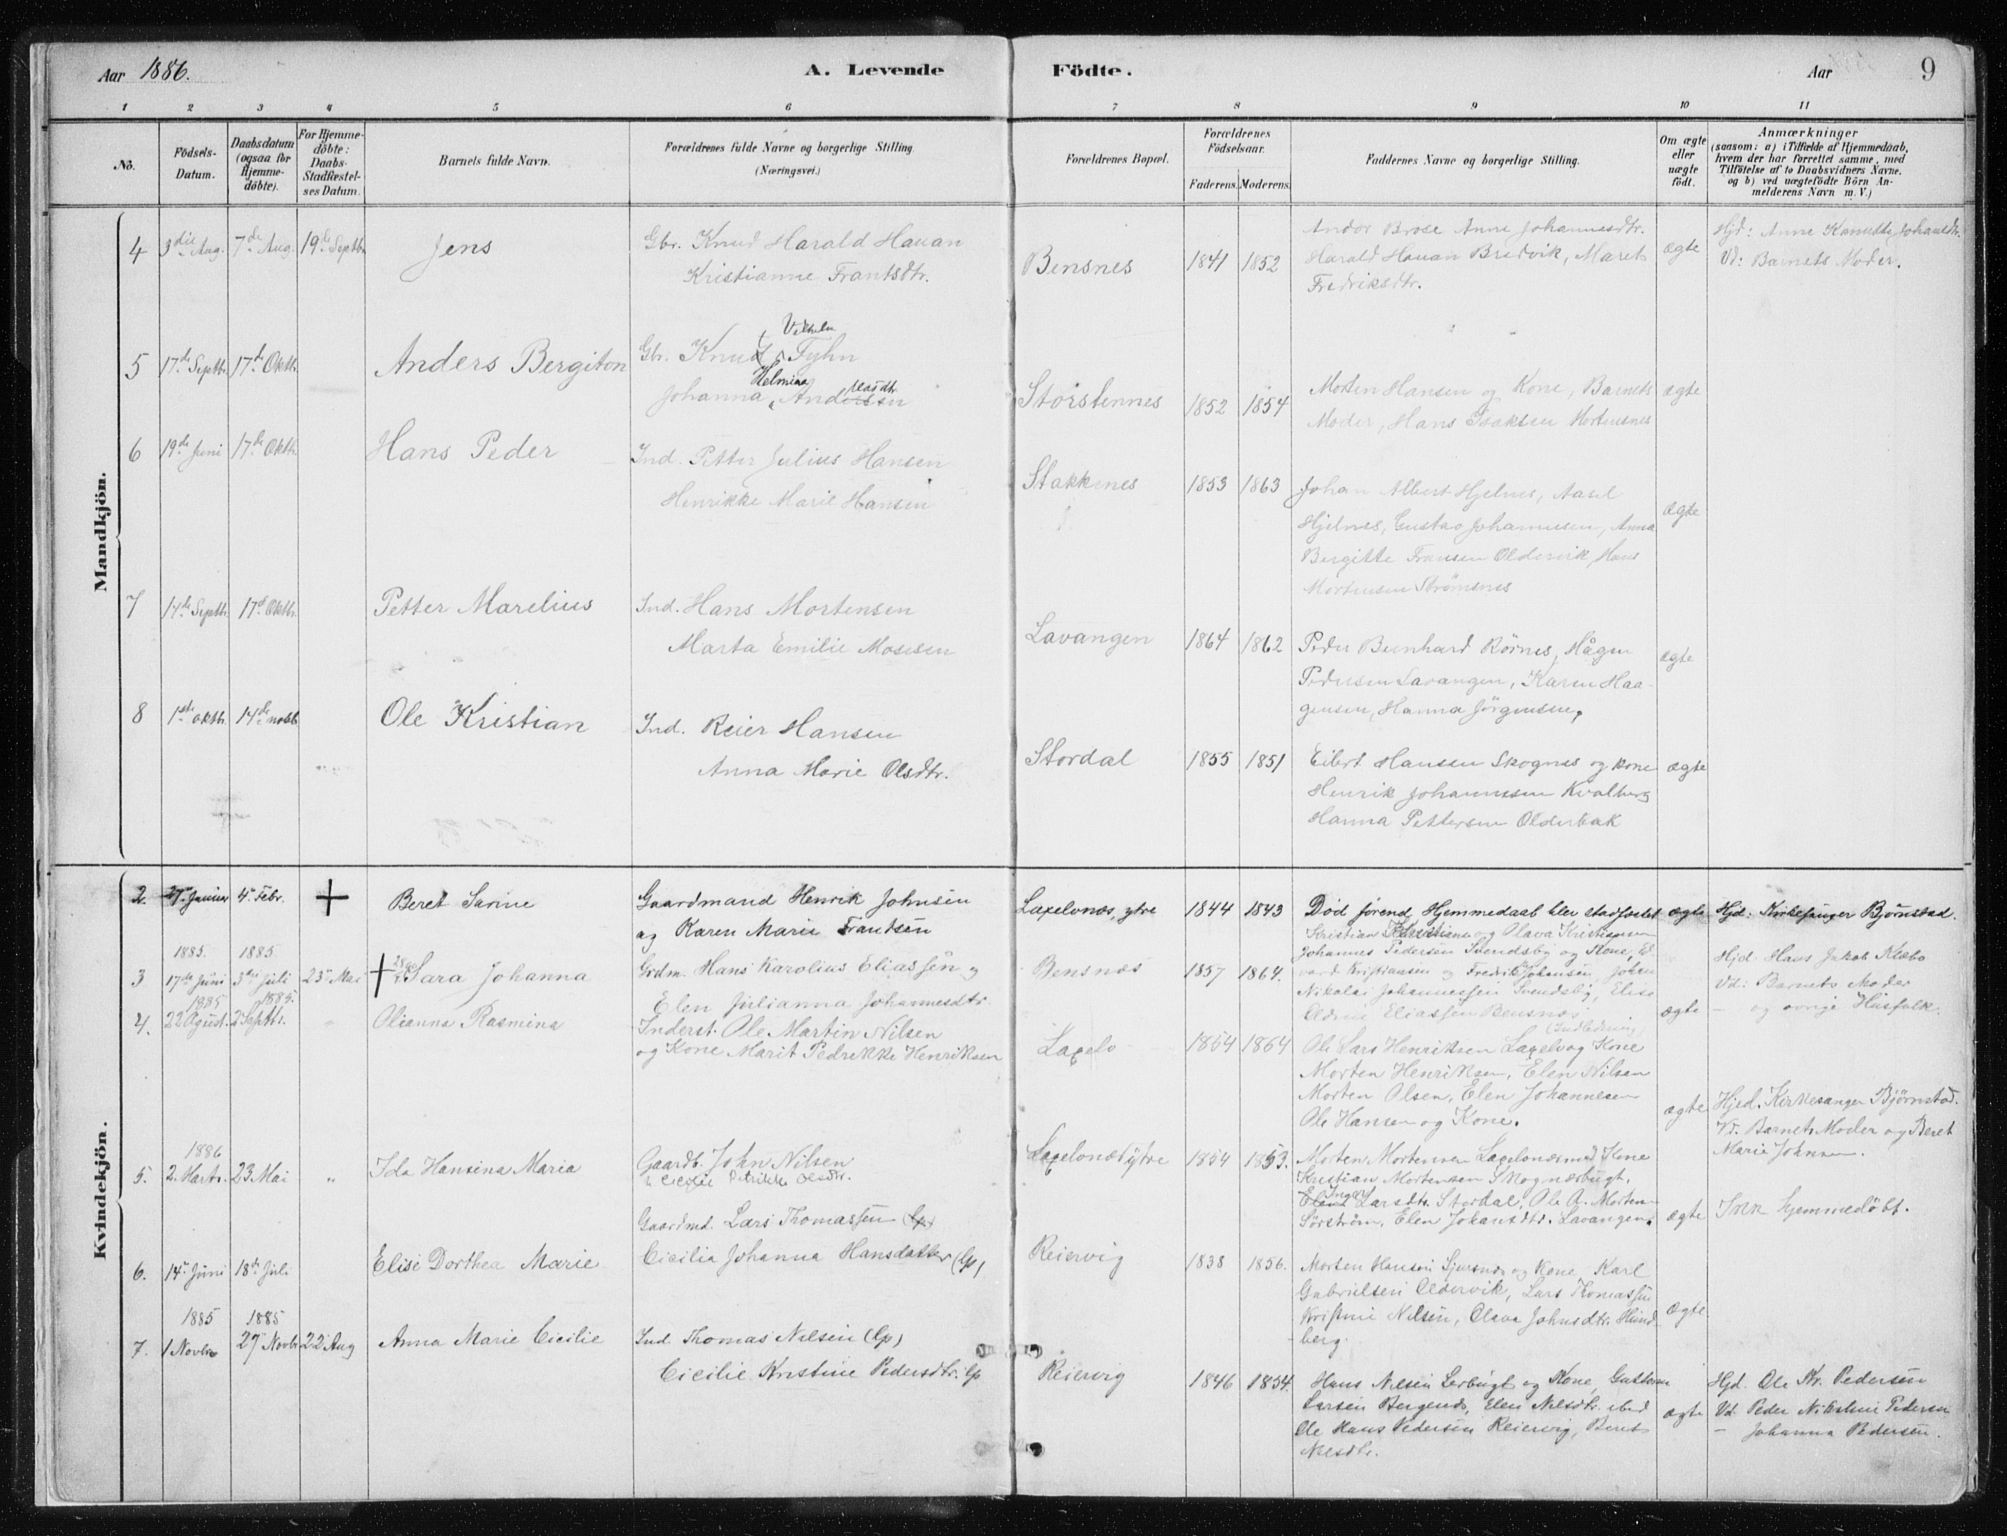 Aar 1886.
A. Levende Födte.
Aar
9
1 2 3 4 5 6 7 8 9 10 11
No.
Födsels-Datum.
Daabsdatum (ogsaa for Hjemme-döbte).
For Hjemme-döbte: Daabs-Stadfæstel-ses Datum.
Barnets fulde Navn.
Forældrenes fulde Navne og borgerlige Stilling. (Næringsvei.)
Forældrenes Bopæl.
Forældrenes Födselsaar.
Faderens. Moderens.
Faddernes Navne og borgerlige Stilling.
Om ægte eller uægte födt.
Anmærkninger
(saasom: a) i Tilfælde af Hjemmedaab,
hvem der har forrettet samme, med
Tilföielse af to Daabsvidners Navne.
og b) ved uægtefödte Börn An-
melderens Navn m. V.)
Mandkjön.
4 3die Aug. 7de Aug. 19de Septbr. Jens
Gbr. Knud Harald Hauan
Kristianne Frantsdtr.
Bensnes 1841 1852
Andor Brose Anne Johannesdtr.
Harald Hauan Bredvik, Maret
Fredriksdtr.
ægte
Hjd: Anne Johansdtr.
Vd: Barnets Moder.
5 17de Septb. 17de Oktb. Anders Bergiton
Vilhelm
Gbr. Knud Fyhn
Helmina
Johanna Andersen
Storstennes 1852 1854
Morten Hansen og Kone, Barnets
Moder, Hans Isaksen Mortensnes
ægte
6 19de Juni 17de Oktb. Hans Peder
Ind. Petter Julius Hansen
Henrikke Marie Hansen
Stakkenes 1853 1863
Johan Albert Hjelnes, Aasel
Hjelnes, Gustav Johannesen, Anna
Bergitte Fransen Oldervik, Hans
Mortensen Strömsnes
ægte
7 14de Septb. 17de Oktb. Petter Marelius
Ind. Hans Mortensen
Marta Emilie Mosesen
Lavangen 1864 1862
Peder Bernhard Rörnes, Hågen
Pedersen Lavangen, Karen Haa-
gensen, Hanna Jörgensen.
ægte
8 1ste oktb. 14de novb. Ole Kristian
Ind. Reier Hansen
Anna Marie Olsdtr.
Stordal 1855 1851
Eilert Hansen Skognes og kone
Henrik Johannesen Kvalberg
Hanna Pettersen Olderbak
ægte
Kvindekjön.
2. 27 Januar 4 Febr. + Beret Sarine
Gaardmand Henrik Johnsen
og Karen Marie Frantsen
Laxelvnæs, ytre 1844 1843
Död förend Hjemmedaab blev stadfæstet
ægte
Hjd: Kirkesanger Bjørnstad.
3 1885. 17de Juni 1885. 3die Juli 23 Mai + Sara Johanna
Grdm. Hans Karolius Eliassen og
Elen Julianna Johannesdtr.
Bensnæs 1857 1864.
Kristian og Olava Kristiansen
Johannes Pedersen Svendsby og Kone, Ed-
vard Kristiansen og Fredrik Johansen, Johan
Nikolai Johannessen Svendsby, Elise
Eliassen Bensnæs
ægte
Hjd Hans Jakob Klæbo
Vd: Barnets Moder
— og øvrige Husfolk.
4. 1885 22 Agust. 1885. 2 Septbr. " Olianna Rasmina
Inderst. Ole Martin Nilsen
og Kone Marit Pedrikke Henriksen
Laxelv 1864 1864
Ole Lars Henriksen Laxelv og Kone
Morten Henriksen, Elen Nilsen
Morten Olsen, Elen Johannesen
Ole Hansen og Kone.
ægte
Hjed. Kirkesanger Bjørnstad.
Vd. Barnets Moder og Beret
Marie Johnsen.
5. 1886 2. Marts. 23 Mai " Ida Hansina Maria
Gaardb. John Nilsen
Cicilie Petrikke Olsdtr.
Laxelvnæs ytre 1854 1853.
Morten Mortensen Laxelvnæs med Kone
Kristian Mortensen Skognæsbugt,
Inger
Elena Larsdtr. Stordal, Ole A. Morten-
Sörström, Elen Johansdtr. Lavangen.
ægte
Ikke hjemmedöbt.
6. 14 Juni 18de Juli Elise Dorthea Marie
Gaardmd. Lars Thomassen (Lp)
Cicilia Johanna Hansdatter (Lp)
Reiervig 1838 1856.
Morten Hansen Sjursnæs og Kone, Karl
Gabrielsen Oldervik, Lars Tomassen
Kristine Nilsen, Olava Johnsdtr. Hund-
berg.
ægte
7. 1885 1 Novbr 1885 27 Novbr 22 Aug Anna Marie Cicilie
Ind. Thomas Nilsen (Lp)
Cicilie Kristine Pedersdtr. Lp
Reiervig 1846 1854.
Hans Nilsen Lerbugt og Kone, Gustav
Larsen Bergenes, Elen Nilsdtr. ibid
Ole Hans Pedersen Reiervig, Beret
Nilsdtr.
ægte
Hjd. Ole Kr. Pedersen
Vd. Peder Nikolai Pedersen
— Johanna Pedersen.